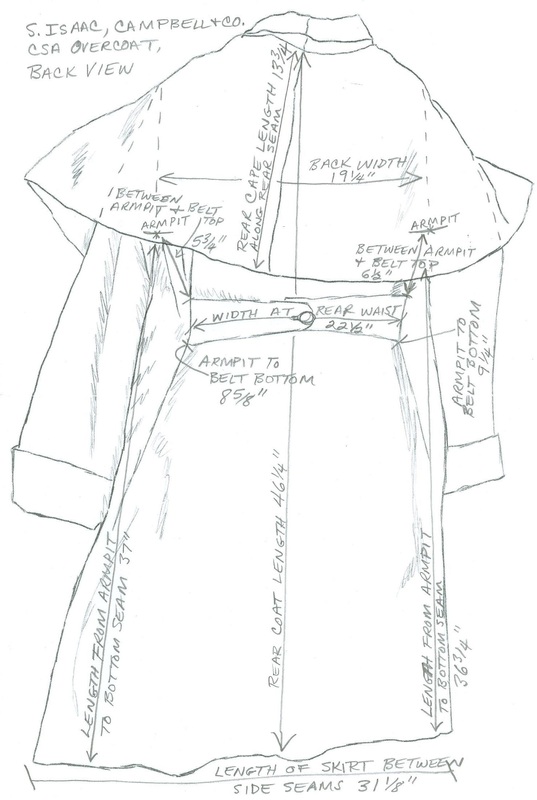 S. ISAAC, CAMPBELL + CO.
CSA OVERCOAT,
BACK VIEW
REAR CAPE LENGTH 13 3/4"
ALONG REAR SEAM
BACK WIDTH
19 1/4"
BETWEEN
ARMPIT + BELT
TOP
ARMPIT
5 3/4"
ARMPIT
BETWEEN ARMPIT
+ BELT TOP
6 1/2"
WIDTH AT REAR WAIST
22 1/2"
ARMPIT TO
BELT BOTTOM
8 5/8"
ARMPIT TO
BELT BOTTOM
9 1/4"
REAR COAT LENGTH 46 1/4"
LENGTH FROM ARMPIT
TO BOTTOM SEAM 37"
LENGTH FROM ARMPIT
TO BOTTOM SEAM
36 3/4"
LENGTH OF SKIRT BETWEEN
SIDE SEAMS 31 1/8"